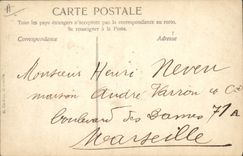 CARTE POSTALE
Tous les pays étrangers n'acceptent pas la correspondance au recto.
Se renseigner à la Poste.
Correspondance Adresse
Monsieur Henri Neveu
maison André Varron & Cie
boulevard des Dames 71 A
Marseille